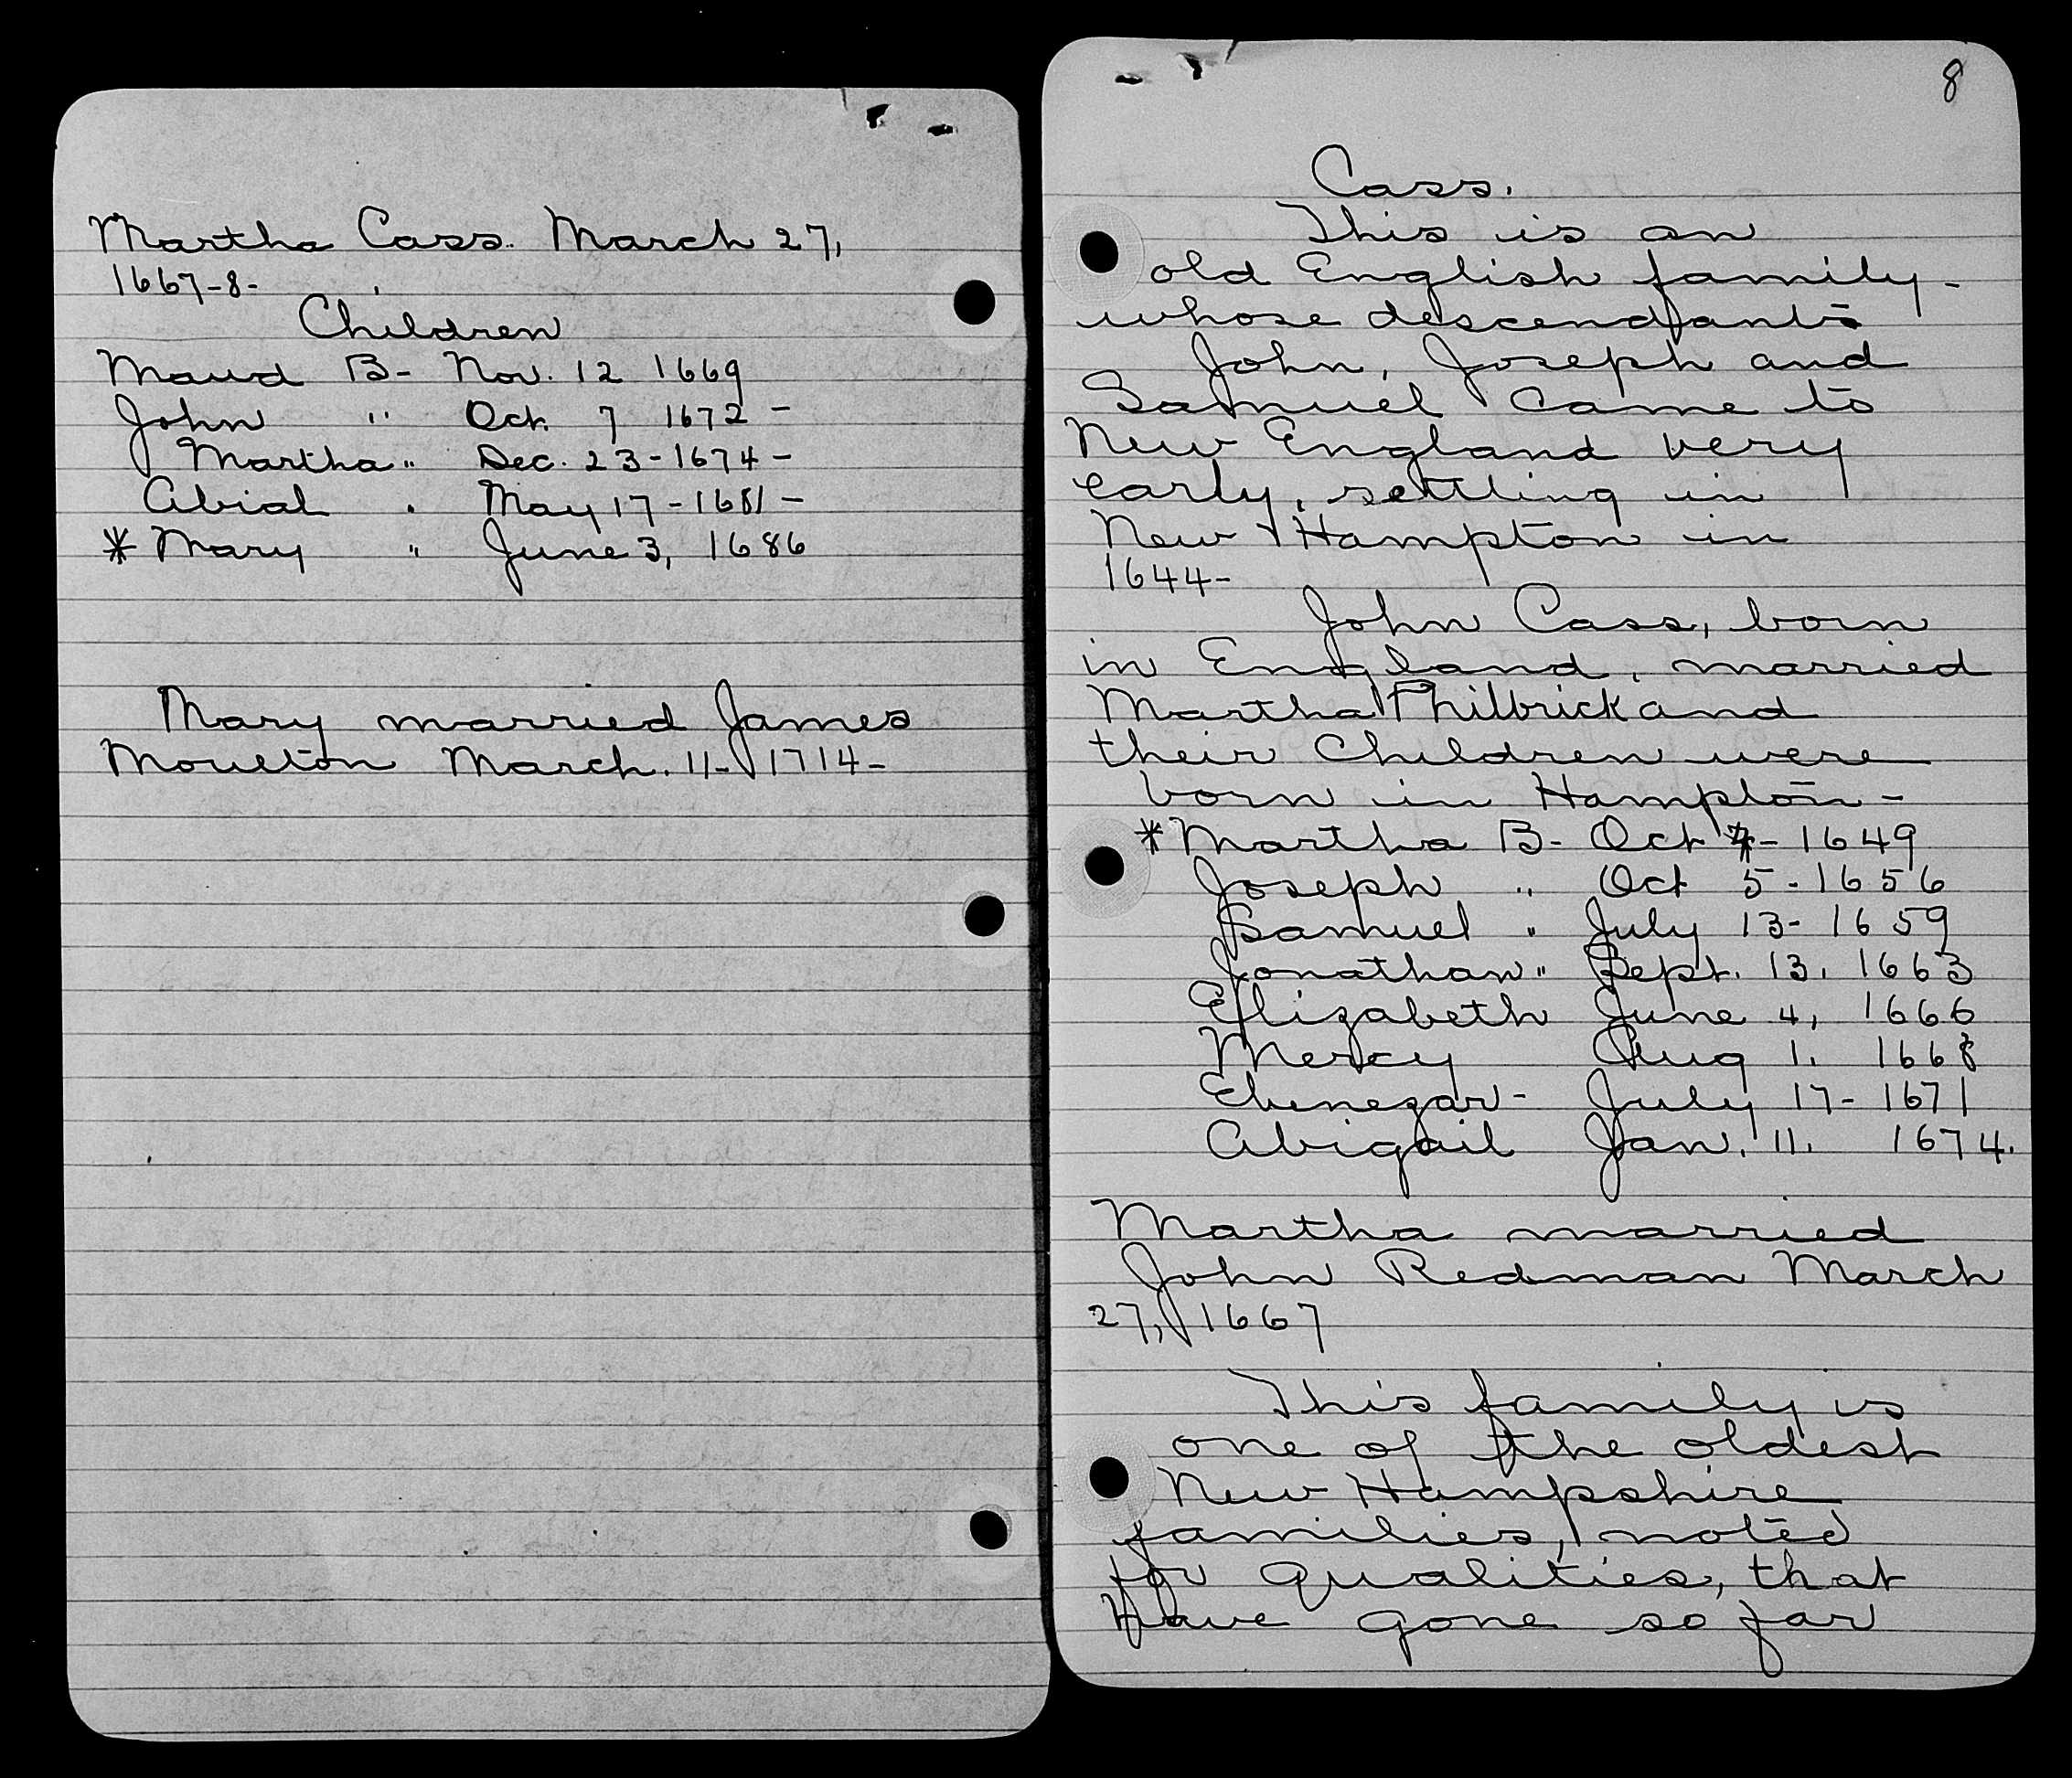 Martha Cass. March 27,
1667-8-
Children
Maud B- Nov. 12 1669
John " Oct. 7 1672 -
Martha " Dec. 23-1674-
Abial " May 17-1681-
* Mary " June 3, 1686
Mary married James
Moulton March. 11- 1714-
8
Cass.
This is an
old English family-
whose descendants
John, Joseph and
Samuel came to
New England very
early, settling in
New Hampton in
1644-
John Cass, born
in England, married
Martha Philbrick and
their Children were
born in Hampton-
* Martha B- Oct 4- 1649
Joseph " Oct 5-1656
Samuel " July 13-1659
Jonathan " Sept. 13, 1663
Elizabeth June 4, 1666
Mercy Aug 1. 1668
Ebenezar- July 17-1671
Abigail Jan. 11. 1674.
Martha married
John Redman March
27, 1667
This family is
one of the oldest
New Hampshire
families, noted
for qualities, that
have gone so far